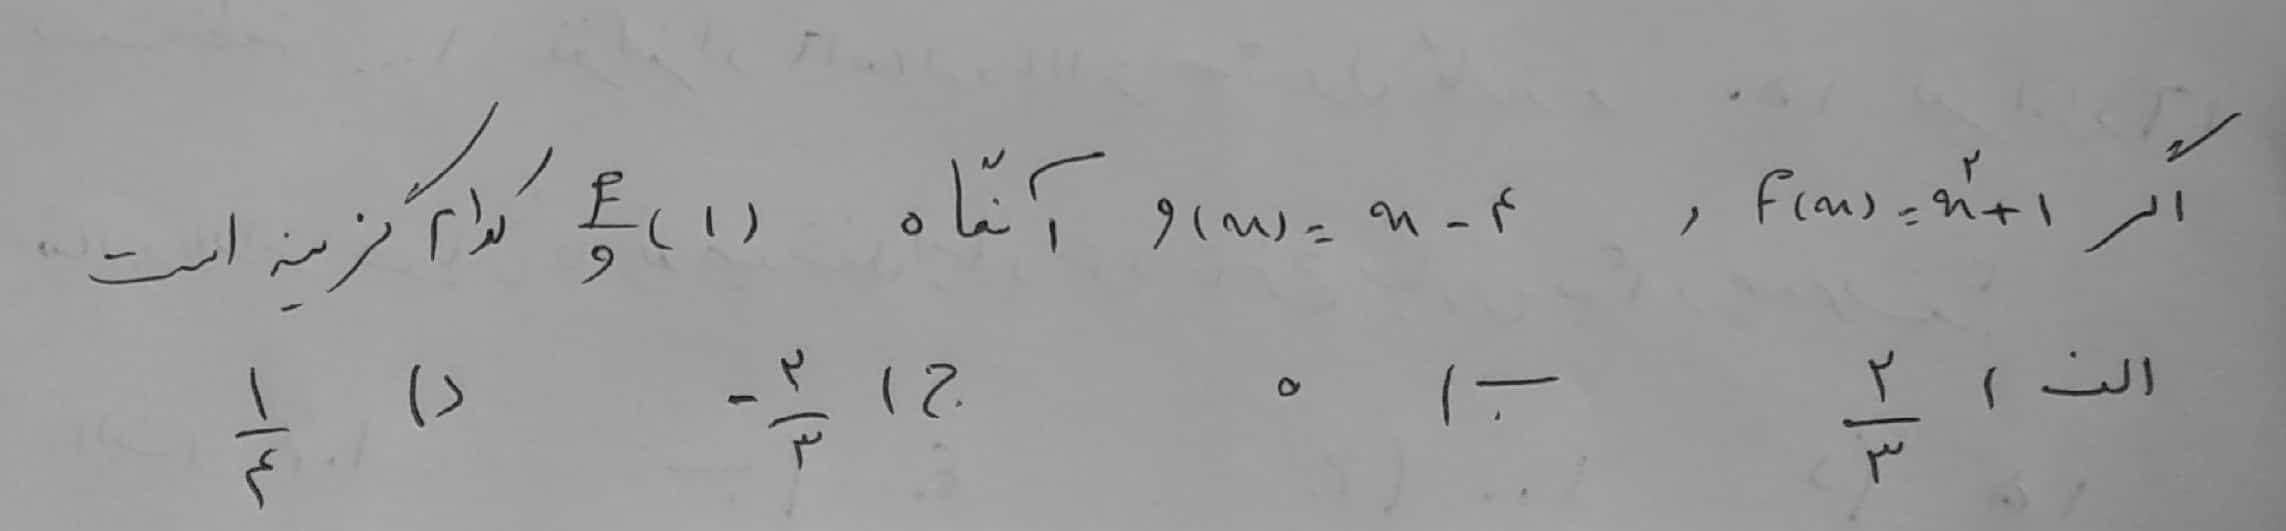 اگر f(x) = x² + 1 , g(x) = x - ۴ آنگاه f/g (1) کدام گزینه است
الف) ۲/۳ ب) ۰ ج) -۲/۳ د) ۱/۴